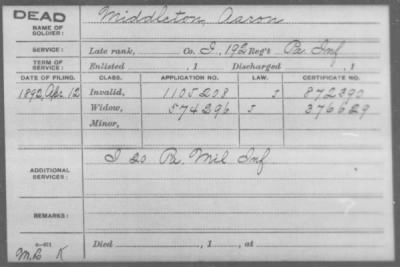 DEAD
NAME OF SOLDIER: Middleton, Aaron
SERVICE: Late rank, Co. I, 192 Reg't Pa. Inf
TERM OF SERVICE: Enlisted , 1 Discharged , 1
DATE OF FILING. CLASS. APPLICATION NO. LAW. CERTIFICATE NO.
1892, Apr. 12 Invalid, 1105208 J 872390
Widow, 574296 J 376629
Minor,
ADDITIONAL SERVICES: I 20 Pa. Mil Inf
REMARKS:
Died , 1 , at